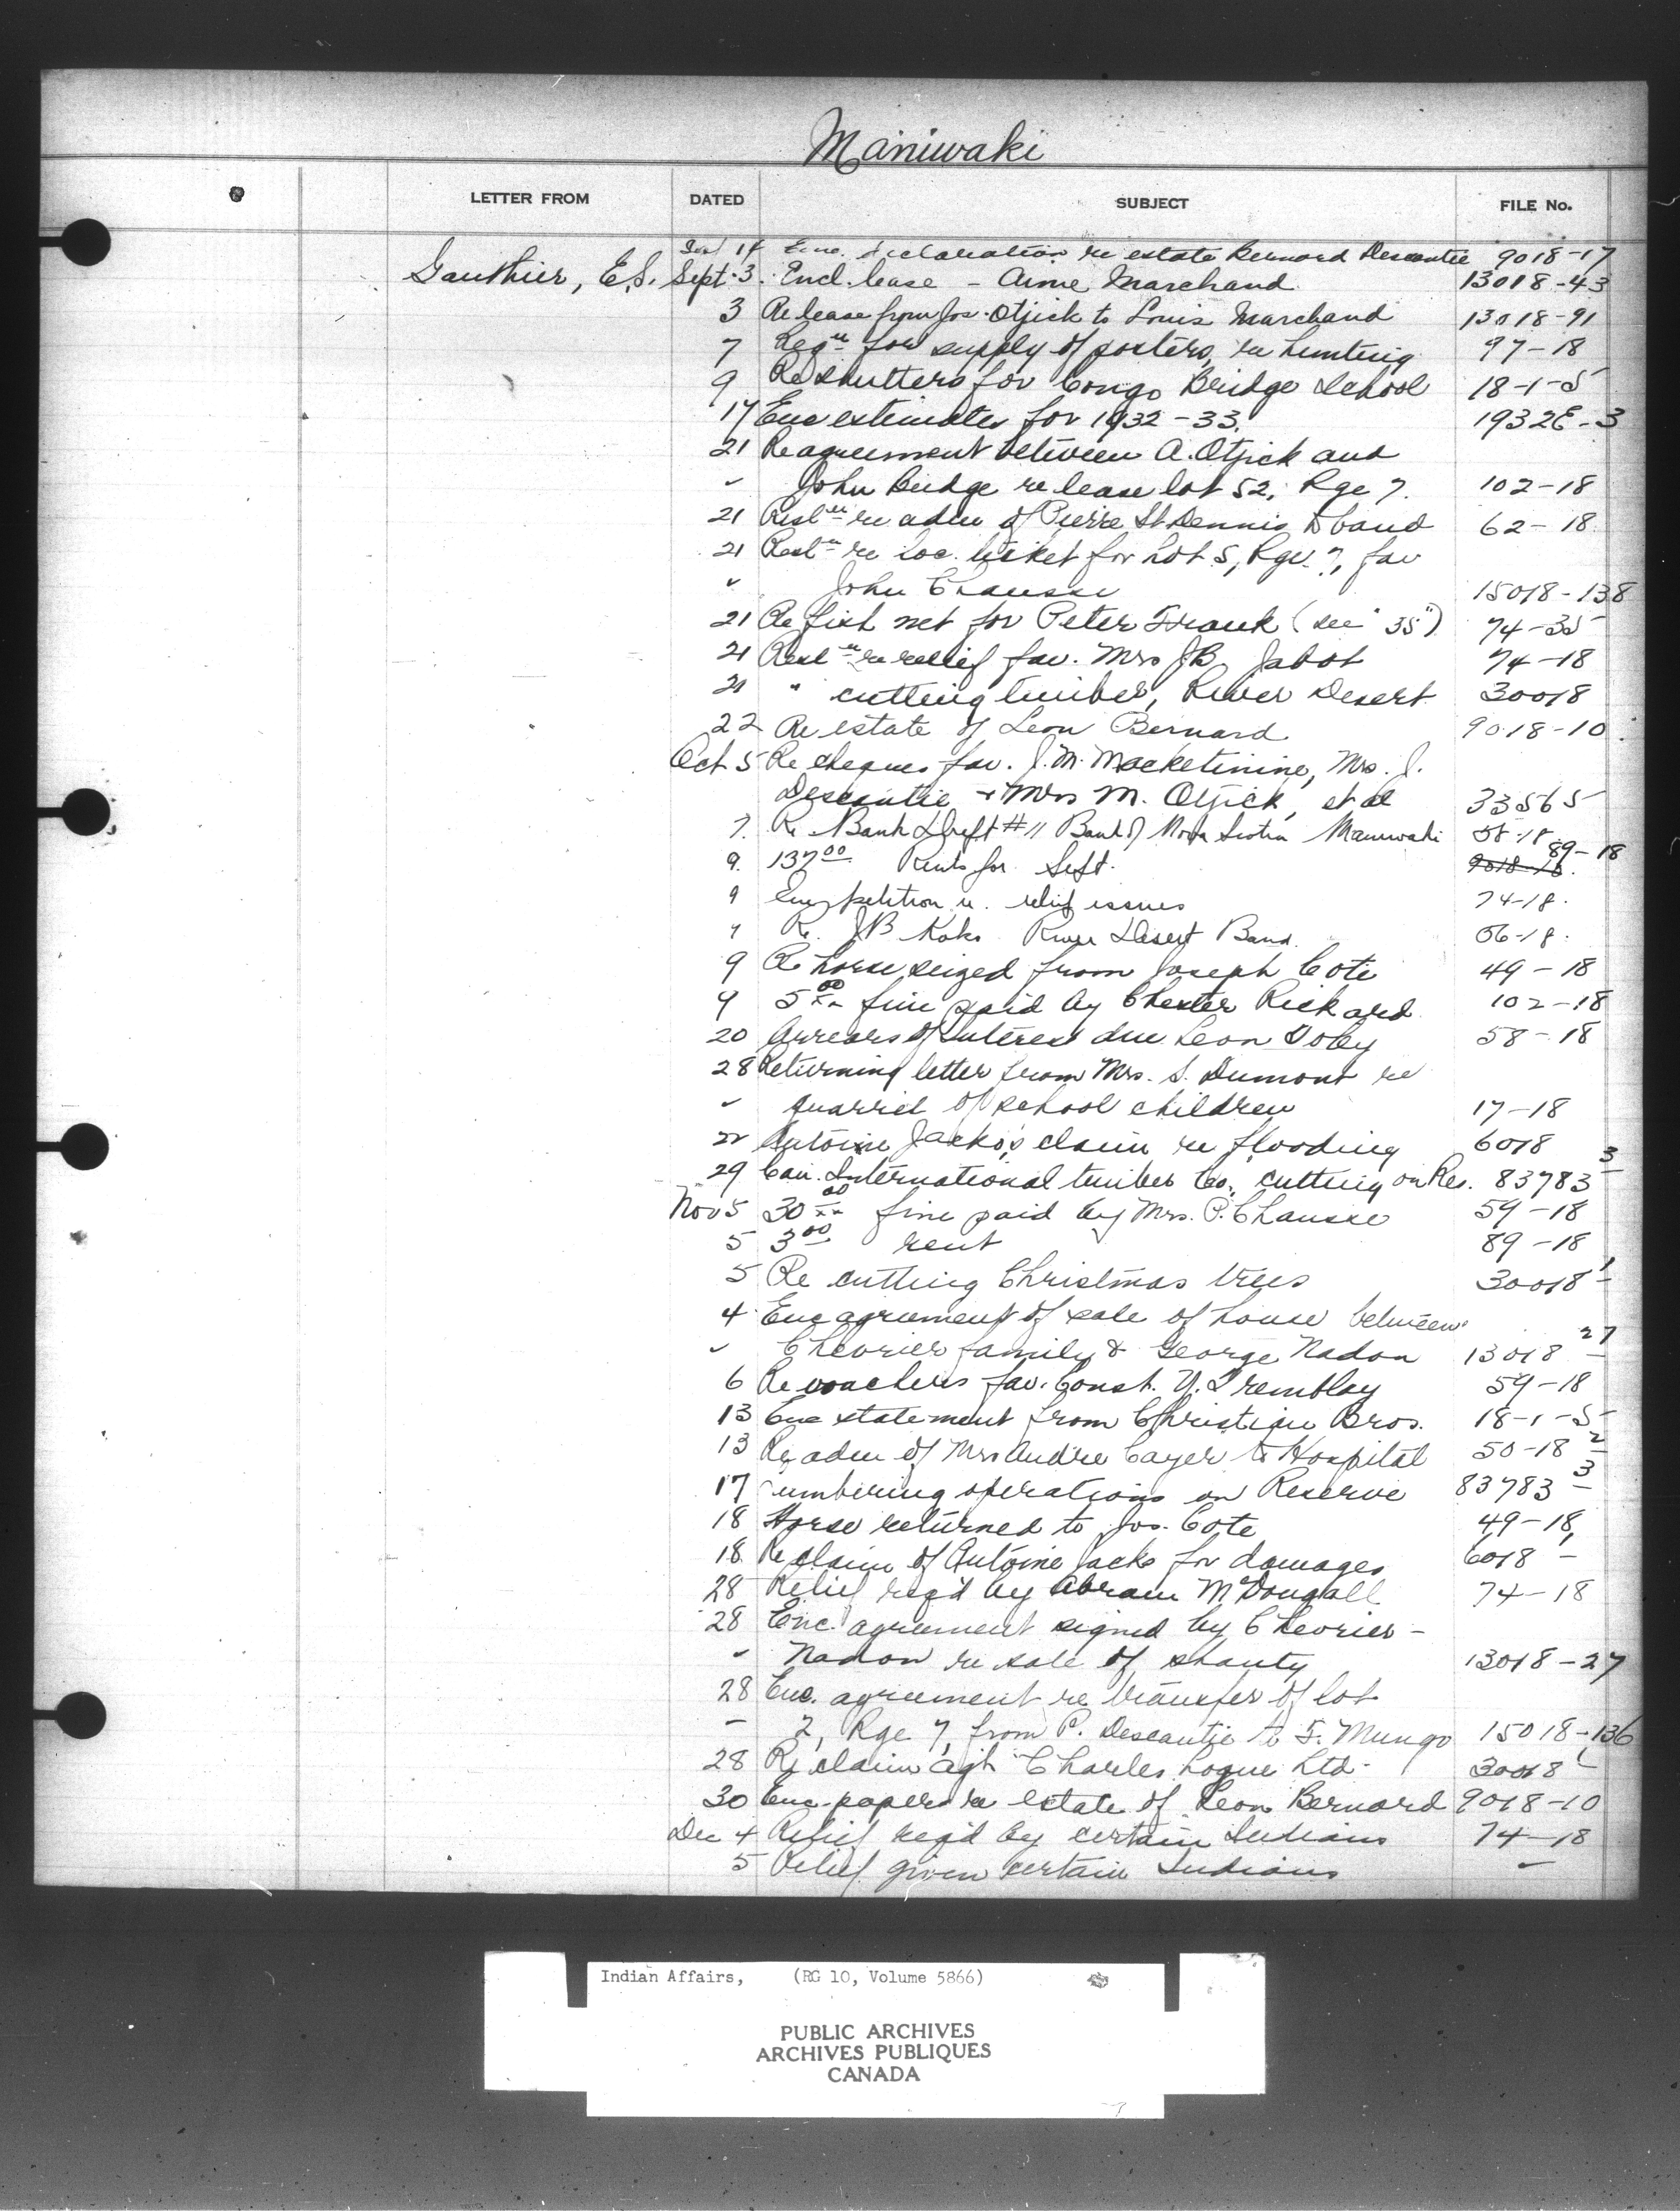 Maniwaki
LETTER FROM DATED SUBJECT FILE No.
14 Enc. declaration re estate Bernard Descontie 9018-17
Gauthier, E.S. Sept. 3. Encl. lease - Aime Marchand 13018-43
3 Re lease from Jos. Otjick to Louis Marchand 13018-91
7 Reqn for supply of posters, re hunting 97-18
9 Re shutters for Congo Bridge School 18-1-5
17 Enc estimates for 1932-33. 1932E-3
21 Re agreement between A. Otjick and
" John Budge re lease lot 52, Rge 7. 102-18
21 re adm of Pierre St Dennis to band 62-18
21 re loc. ticket for Lot 5, Rge. 7, fav
" John Chausse 15018-138
21 Re fish net for Peter Frank (see "35") 74-35
21 re relief fav. Mrs JB Jabot 74-18
21 " cutting timber, River Desert 30018
22 Re estate of Leon Bernard 9018-10
Oct 5 Re cheques fav. J.M. Macketinine, Mrs. J.
Descontie & Mrs M. Otjick, et al 33565
7. Re Bank Draft #11 Bank of Nova Scotia Maniwaki 58-18
9. 137 00 Rents for Sept. 9018-10. 89-18
9 Enc petition re. relief issues 74-18.
9 Re. JB Koko River Desert Band. 56-18.
9 Re horse seized from Joseph Cote 49-18
9 5 00 fine paid by Chester Rickard 102-18
20 Arrears of Interest due Leon Doley 58-18
28 Returning letter from Mrs. S. Dumont re
" quarrel of school children 17-18
Antoine Jacko's claim re flooding 6018
29 Can. International timber Co., cutting on Res. 83783 3
Nov 5 30 00 fine paid by Mrs. P. Chausse 59-18
5 3 00 rent 89-18
5 Re cutting Christmas trees 30018 1
4 Enc agreement of sale of house between
" Chevrier family & George Nadon 13018 27
6 Re vouchers fav. Const. Y. Tremblay 59-18
13 Enc statement from Christian Bros. 18-1-5
13 Re adm of Mrs Andre Cayer to Hospital 50-18 2
17 Lumbering operations on Reserve 83783 3
18 Horse returned to Jos. Cote 49-18
18. Re claim of Antoine Jacko for damages 6018 1
28 Relief req'd by Abram McDougall 74-18
28 Enc. agreement signed by Chevrier -
" Nadon re sale of shanty 13018-27
28 Enc. agreement re transfer of lot
" 2, Rge 7, from P. Descontie to F. Mungo 15018-136
28 Re claim agt Charles Logue Ltd. 30018 1
30 Enc. papers re estate of Leon Bernard 9018-10
Dec 4 Relief req'd by certain Indians 74-18
5 Relief given certain Indians "
Indian Affairs, (RG 10, Volume 5866)
PUBLIC ARCHIVES
ARCHIVES PUBLIQUES
CANADA